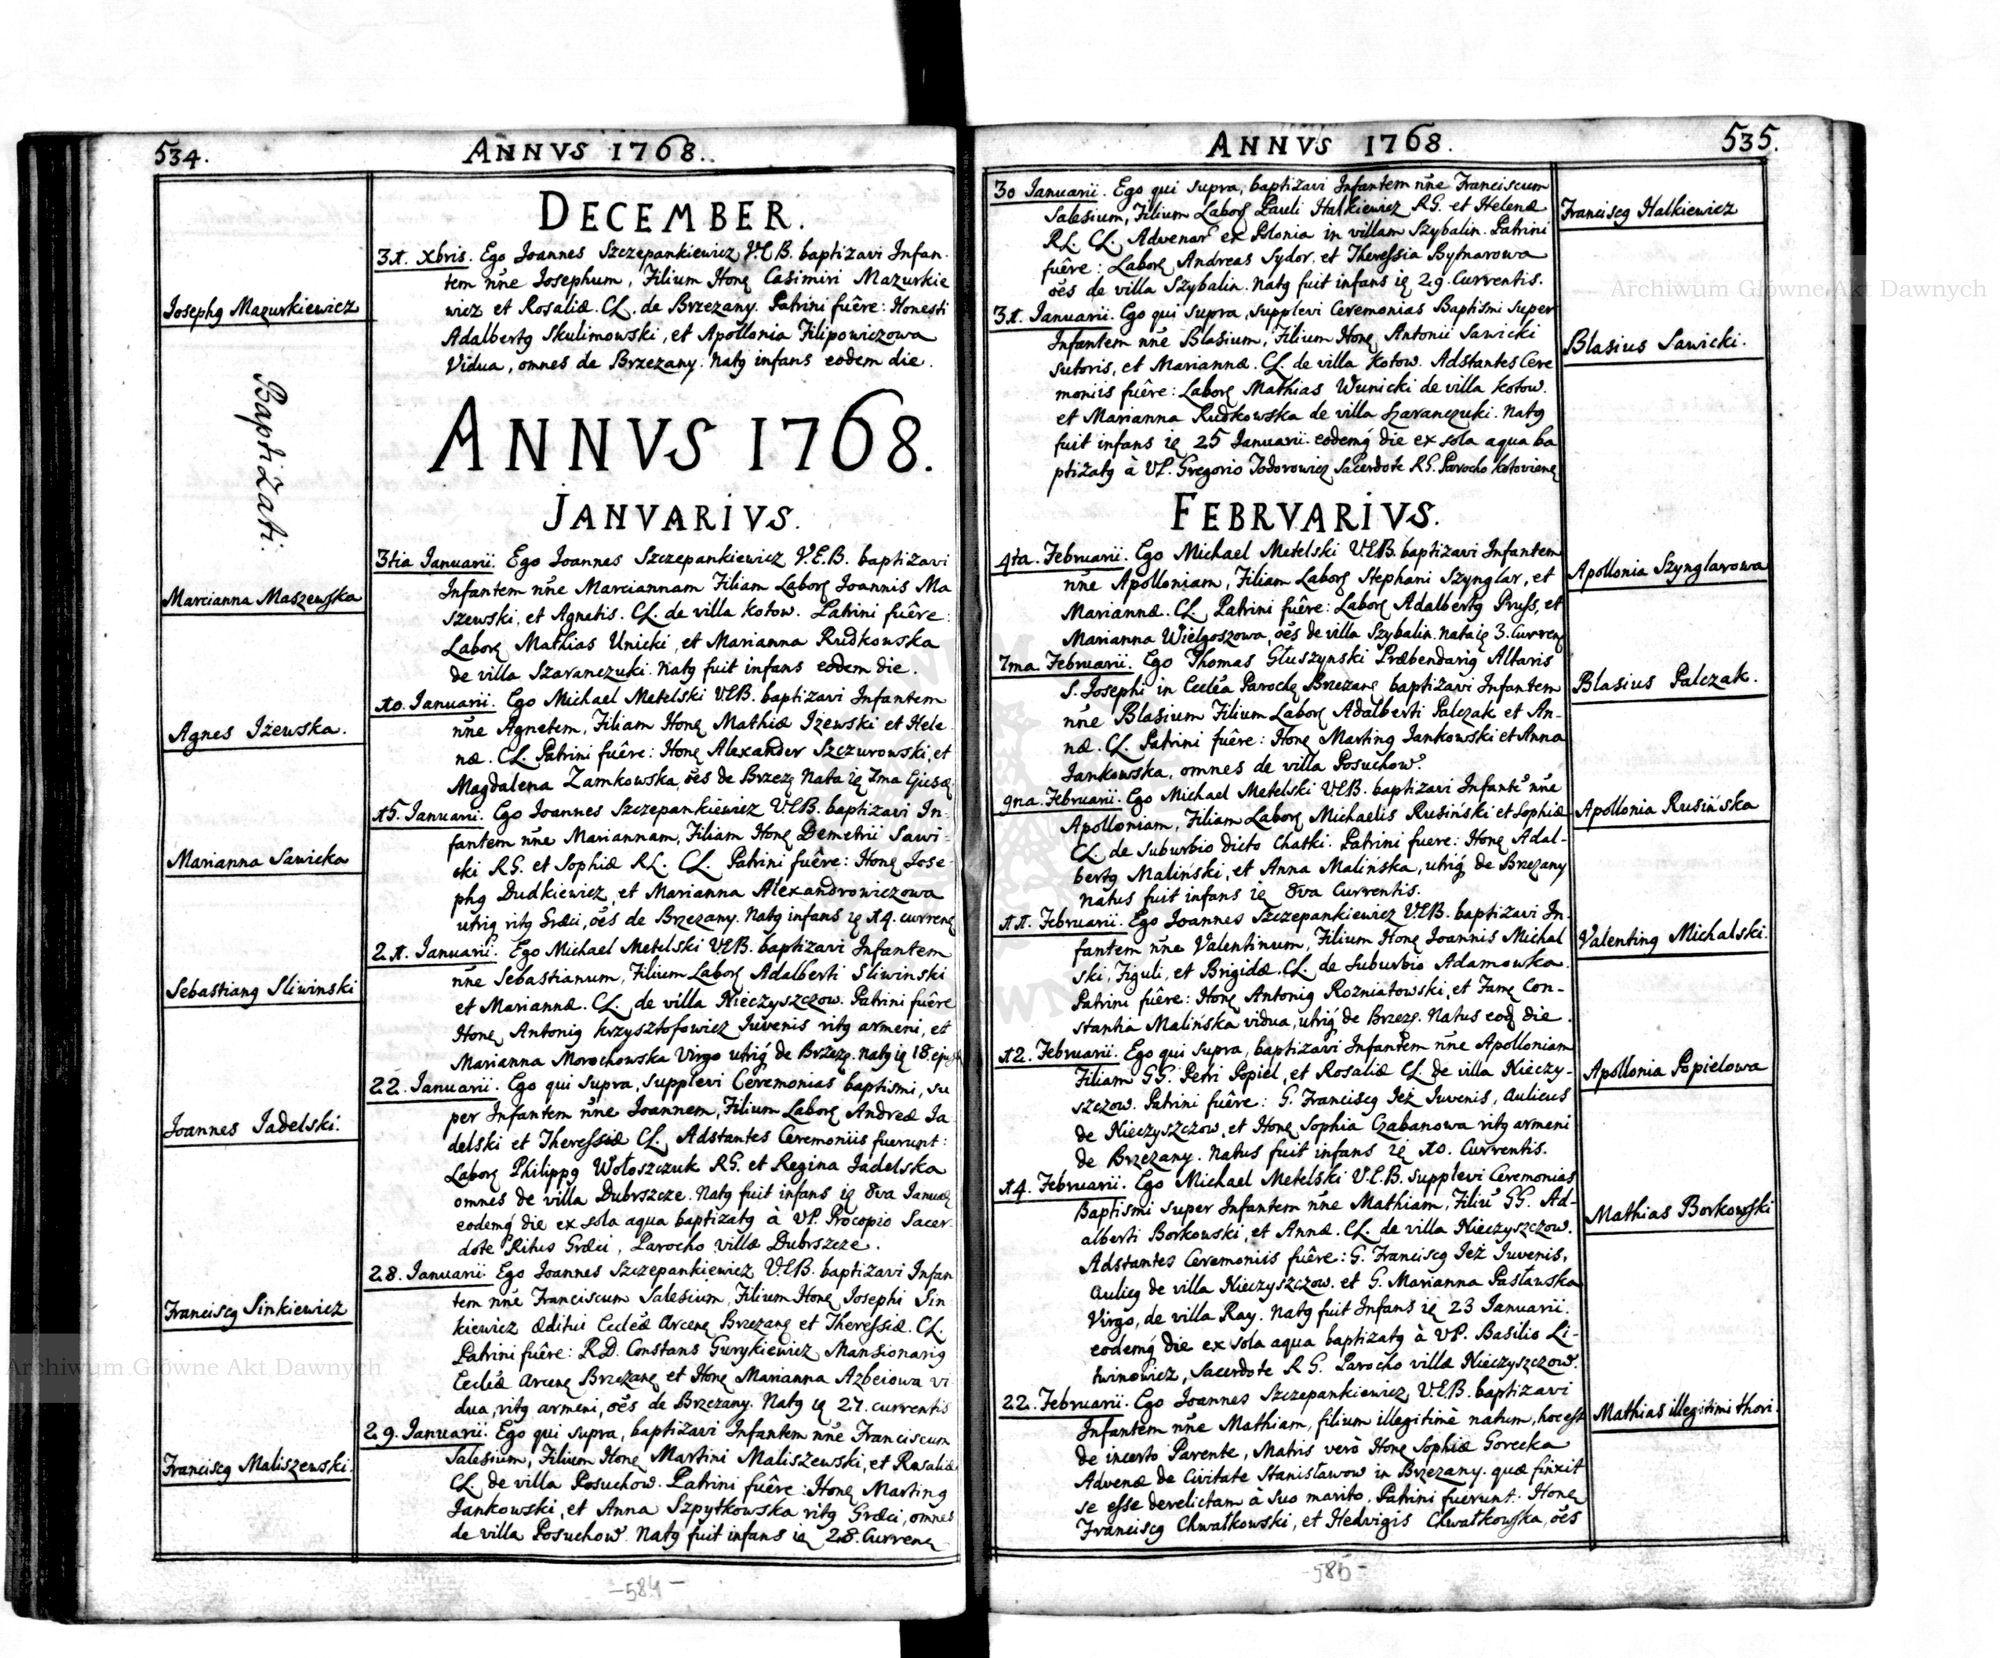 534.
ANNVS 1768.
DECEMBER.
31. Xbris. Ego Joannes Szczepankiewicz V.E.B. baptizavi Infan-
tem nñe Josephum, Filium Honę Casimiri Mazurkie
wicz et Rosaliæ. CL. de Brzezany. Patrini fuêre: Honesti
Josephg Mazurkiewicz
Adalbertg Skulimowski, et Apollonia Filipowiczowa
Vidua, omnes de Brzezany. Natg infans eodem die.
Baptizati:
ANNVS 1768.
JANVARIVS.
3tia Januarii. Ego Joannes Szczepankiewicz V.E.B. baptizavi
Infantem nñe Marciannam Filiam Laborę Joannis Ma
Marcianna Maszewska
szewski, et Agnetis. CL. de villa Kotow. Patrini fuêre:
Laborę Mathias Unicki, et Marianna Rudkowska
de villa Szaranczuki. Natg fuit infans eodem die.
10. Januarii. Ego Michael Metelski V.E.B. baptizavi Infantem
nñe Agnetem, Filiam Honę Mathiæ Iżewski et Hele
Agnes Iżewska.
næ. CL. Patrini fuêre: Honę Alexander Szczurowski, et
Magdalena Zamkowska, oẽs de Brzezę Nata ię 7ma
15. Januarii. Ego Joannes Szczepankiewicz V.E.B. baptizavi In-
fantem nñe Mariannam, Filiam Honę Demetrii Sawi-
Marianna Sawicka
cki RG. et Sophiæ RL. CL. Patrini fuêre: Honę Jose-
phg Dudkiewicz, et Marianna Alexandrowiczowa
utrig ritg Græci, oẽs de Brzezany. Natg infans ię 14. currenę
21. Januarii. Ego Michael Metelski V.E.B. baptizavi Infantem
nñe Sebastianum, Filium Laborę Adalberti Sliwinski
Sebastiang Sliwinski
et Mariannæ. CL. de villa Nieczyszczow. Patrini fuêre
Honę Antonig Krzysztofowicz Juvenis ritg armeni, et
Marianna Morochowska Virgo utriq́ de Brzezę. Natg ię 18. ejusd
22. Januarii. Ego qui supra, supplevi Ceremonias baptismi, su
per Infantem nñe Joannem, Filium Laborę Andreæ Ja
Joannes Jadelski.
delski et Theressiæ CL. Adstantes Ceremoniis fuerunt:
Laborę Philippg Wołoszczuk RG. et Regina Jadelska
omnes de villa Dubrszcze. Natg fuit infans ię 8va Januaę
eodemq́ die ex sola aqua baptizatg à VP. Procopio Sacer-
dote Ritus Græci, Parocho villæ Dubrszcze.
28. Januarii. Ego Joannes Szczepankiewicz V.E.B. baptizavi Infan
tem nñe Franciscum Salesium, Filium Honę Josephi Sin
Franciscg Sinkiewicz
kiewicz æditui Eccléæ Arcenę Brzezanę et Theressiæ. CL.
Patrini fuêre: R.D. Constans Gurykiewicz Mansionarig
Eccléæ Arcenę Brzezanę et Honę Marianna Azbeiowa vi
dua, ritg armeni, oẽs de Brzezany. Natg ię 27. currentis
29. Januarii. Ego qui supra, baptizavi Infantem nñe Franciscum
Salesium, Filium Honę Martini Maliszewski, et Rosaliæ
Franciscg Maliszewski.
CL. de villa Posuchow. Patrini fuêre: Honę Marting
Jankowski, et Anna Szpytkowska ritg Græci, omnes
de villa Posuchow. Natg fuit infans ię 28. Currenę
-584-
ANNVS 1768.
535.
30 Januarii. Ego qui supra, baptizavi Infantem nñe Franciscum
Salesium, Filium Laborę Pauli Halkiewicz RG. et Helenæ
Franciscg Halkiewicz
RL. CL. Advenar ex Polonia in villam Szybalin. Patrini
fuêre: Laborę Andreas Sydor, et Theressia Bytnarowa
oẽs de villa Szybalin. Natg fuit infans ię 29. Currentis.
31. Januarii. Ego qui supra, supplevi Ceremonias Baptismi super
Infantem nñe Blasium, Filium Honę Antonii Sawicki
Blasius Sawicki.
Sutoris, et Mariannæ. CL. de villa Kotow. Adstantes Cere
moniis fuêre: Laborę Mathias Wunicki de villa Kotow.
et Marianna Rudkowska de villa Szaranczuki. Natg
fuit infans ię 25 Januarii. eodemq́ die ex sola aqua ba
ptizatg à VP. Gregorio Todorowicz Sacerdote RG. Parocho Kotovienę
FEBRVARIVS.
4ta. Februarii. Ego Michael Metelski V.E.B. baptizavi Infantem
nñe Apolloniam, Filiam Laborę Stephani Szynglar, et
Apollonia Szynglarowa
Mariannæ. CL. Patrini fuêre: Laborę Adalbertg Pruss, et
Marianna Wielgoszowa, oẽs de villa Szybalin. Nata ię 3. Curren
7ma. Februarii. Ego Thomas Głuszynski Præbendarig Altaris
S. Josephi in Eccléa Parochę Brzezanę baptizavi Infantem
Blasius Palczak.
nñe Blasium Filium Laborę Adalberti Palczak et An-
næ. CL. Patrini fuêre: Honę Marting Jankowski et Anna
Jankowska, omnes de villa Posuchow.
9na. Februarii. Ego Michael Metelski V.E.B. baptizavi Infantẽ nñe
Apolloniam, Filiam Laborę Michaelis Rusiński et Sophiæ
Apollonia Rusińska
CL. de Suburbio dicto Chatki. Patrini fuere: Honę Adal-
bertg Maliński, et Anna Malińska, utriq́ de Brzezany
natus fuit infans ię 8va Currentis.
11. Februarii. Ego Joannes Szczepankiewicz V.E.B. baptizavi In-
fantem nñe Valentinum, Filium Honę Joannis Michal
Valenting Michalski.
ski, Figuli, et Brigidæ. CL. de suburbio Adamowka.
Patrini fuêre: Honę Antonig Rozniatowski, et Famę Con-
stantia Malińska vidua, utriq́ de Brzezę. Natus eoḑ die.
12. Februarii. Ego qui supra, baptizavi Infantem nñe Apolloniam
Filiam GG. Petri Popiel, et Rosaliæ CL. de villa Nieczy-
Apollonia Popielowa
szczow. Patrini fuêre: G. Franciscg Jeż Juvenis, Aulicus
de Nieczyszczow, et Honę Sophia Czabanowa ritg armeni
de Brzezany. Natus fuit infans ię 10. Currentis.
14. Februarii. Ego Michael Metelski V.E.B. Supplevi Ceremonias
Baptismi super Infantem nñe Mathiam, Filiũ GG. Ad-
Mathias Borkowski
alberti Borkowski, et Annæ. CL. de villa Nieczyszczow.
Adstantes Ceremoniis fuêre: G. Franciscg Jeż Juvenis,
Aulicg de villa Nieczyszczow. et G. Marianna Pasławska
Virgo, de villa Ray. Natg fuit Infans ię 23 Januarii.
eodemq́ die ex sola aqua baptizatg à VP. Basilio Li-
twinowicz, Sacerdote RG. Parocho villæ Nieczyszczow.
22. Februarii. Ego Joannes Szczepankiewicz V.E.B. baptizavi
Infantem nñe Mathiam, filium illegitimè natum, hoc est
Mathias illegitimi thori.
de incerto Parente, Matris verò Honę Sophiæ Gorecka
Advenæ de Civitate Stanisławow in Brzezany. quæ finxit
se esse derelictam à suo marito. Patrini fuerunt: Honę
Franciscg Chwałkowski, et Hedvigis Chwałkowska, oẽs
-585-
Archiwum Główne Akt Dawnych
Archiwum Główne Akt Dawnych